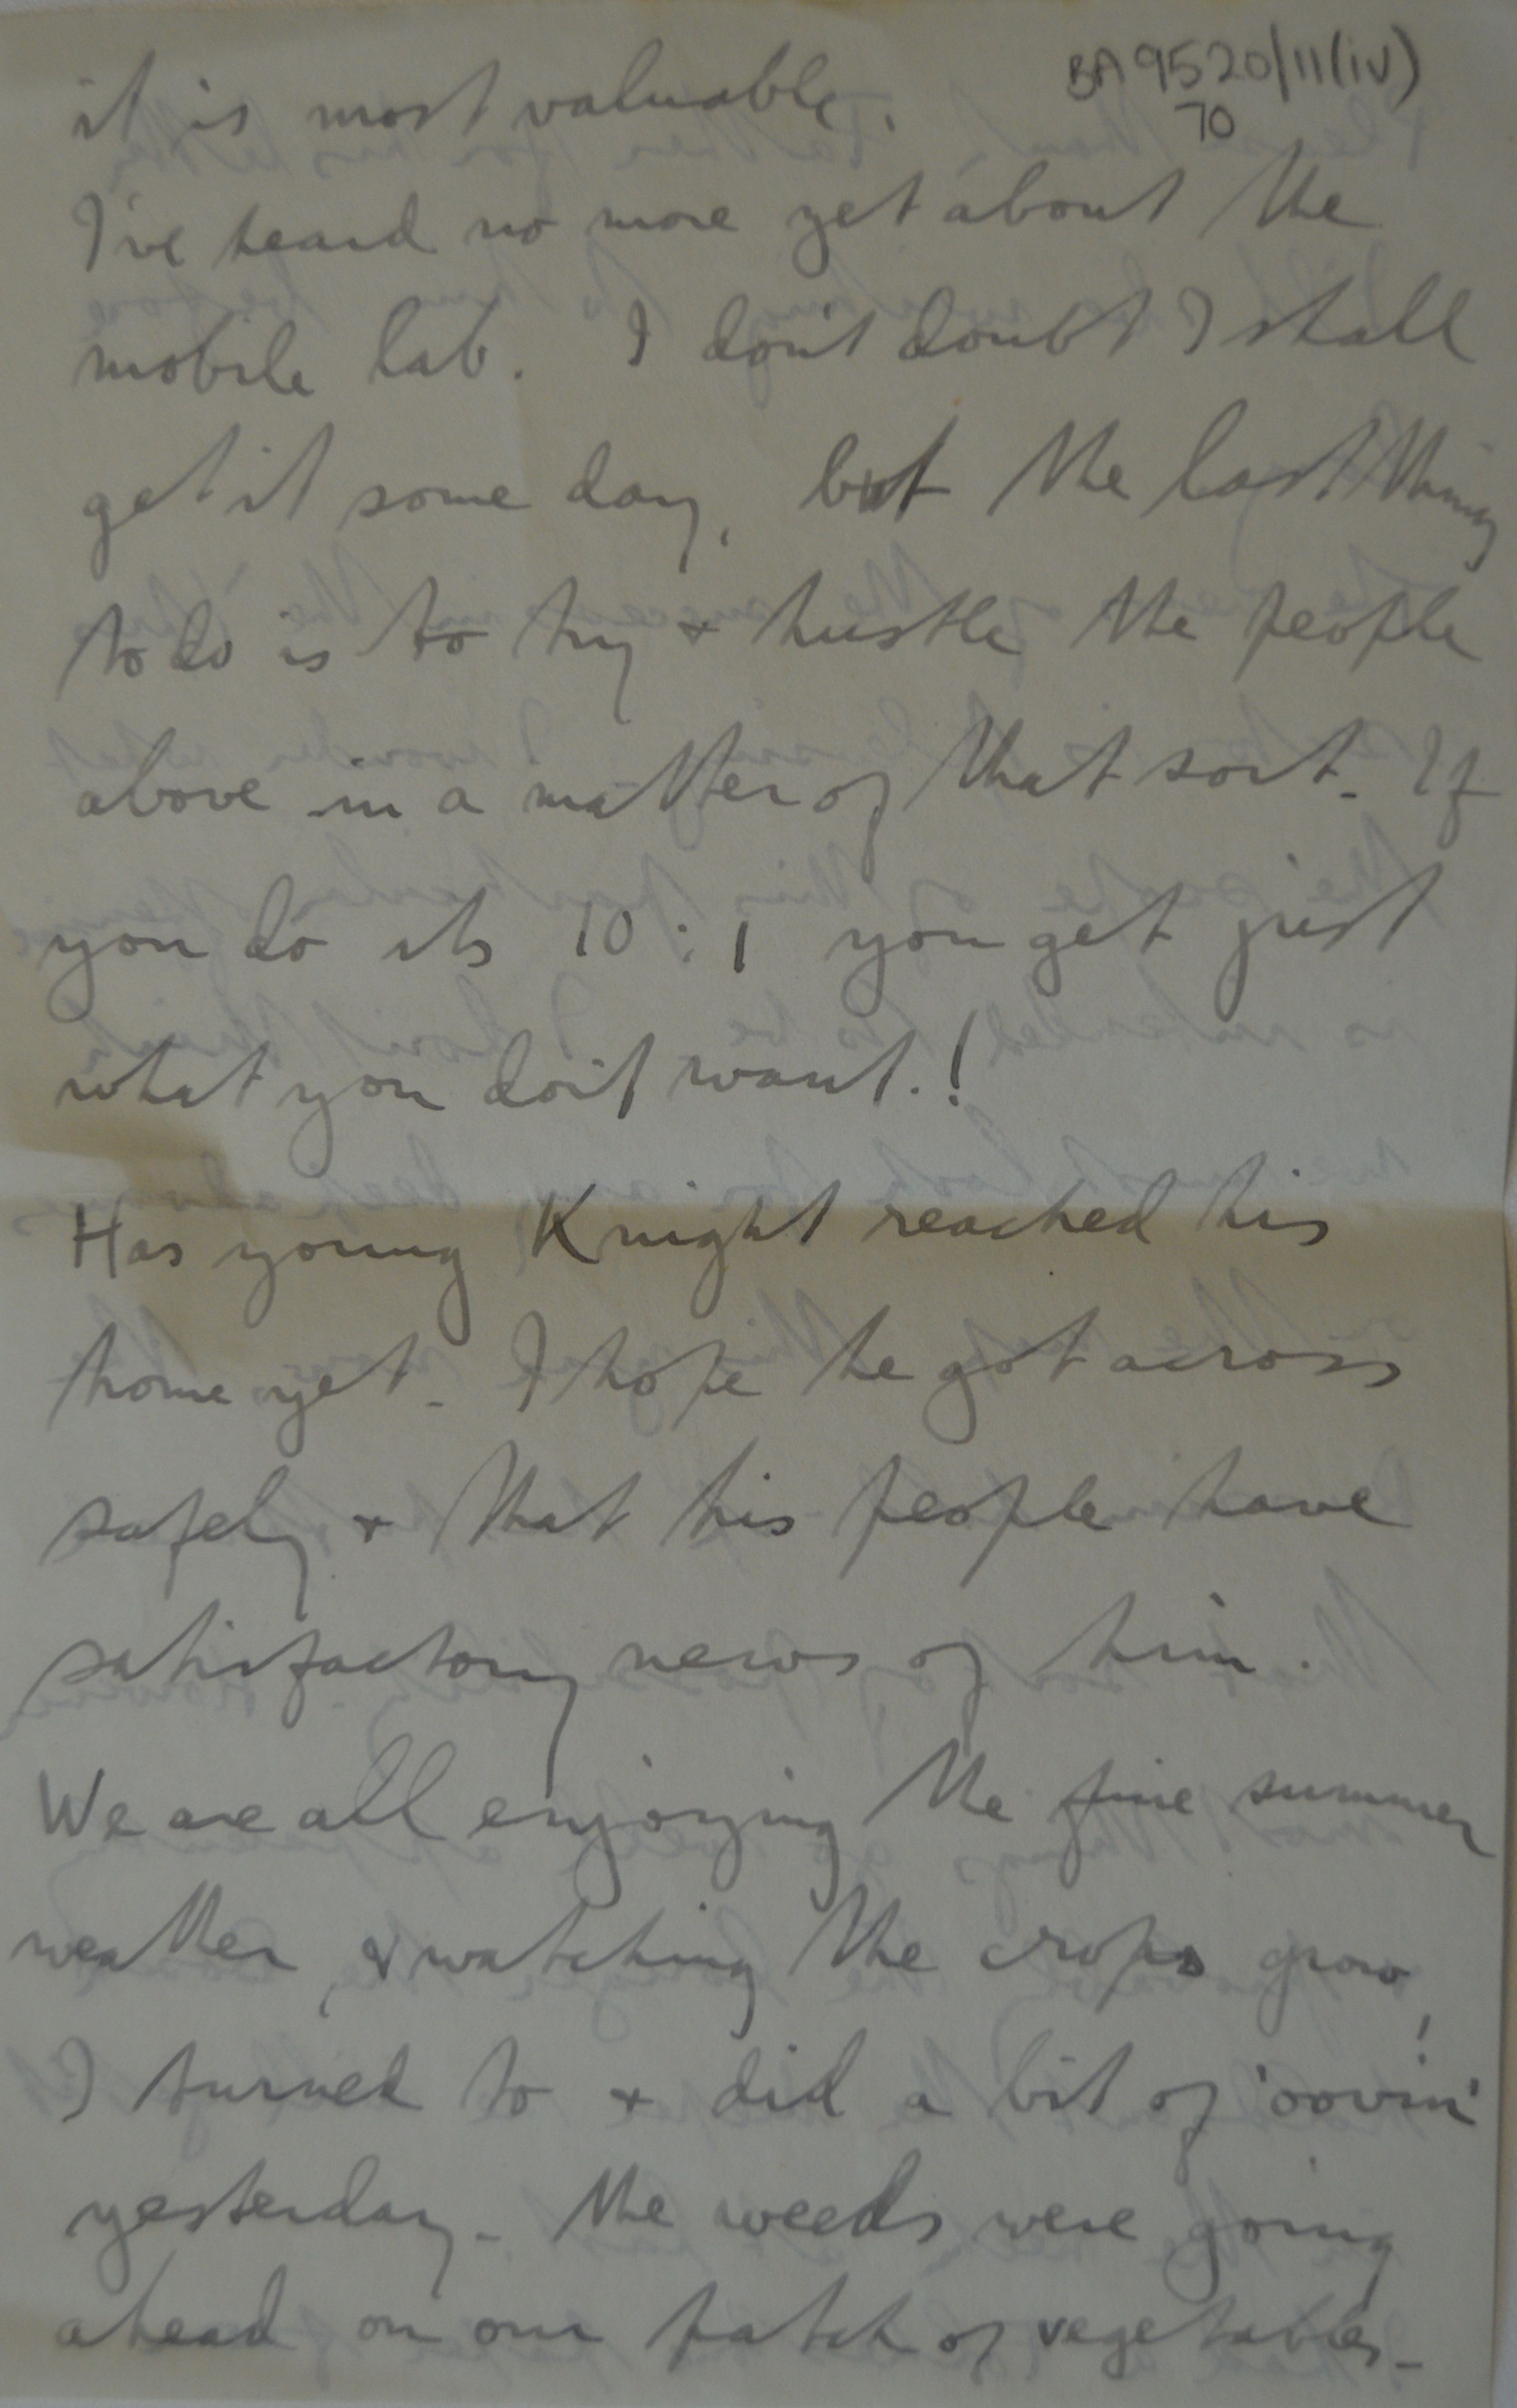 BA 9520/11(iv)
70
it is most valuable.
I've heard no more yet about the
mobile lab. I don't doubt I shall
get it some day, but the last thing
to do is to try & hustle the people
above in a matter of that sort. If
you do its 10:1 you get just
what you don't want.!
Has young Knight reached his
home yet. I hope he got across
safely & that his people have
satisfactory news of him.
We are all enjoying the fine summer
weather, & watching the crops grow!
I turned to & did a bit of 'oovin'
yesterday. The weeds were going
ahead on our patch of vegetables.